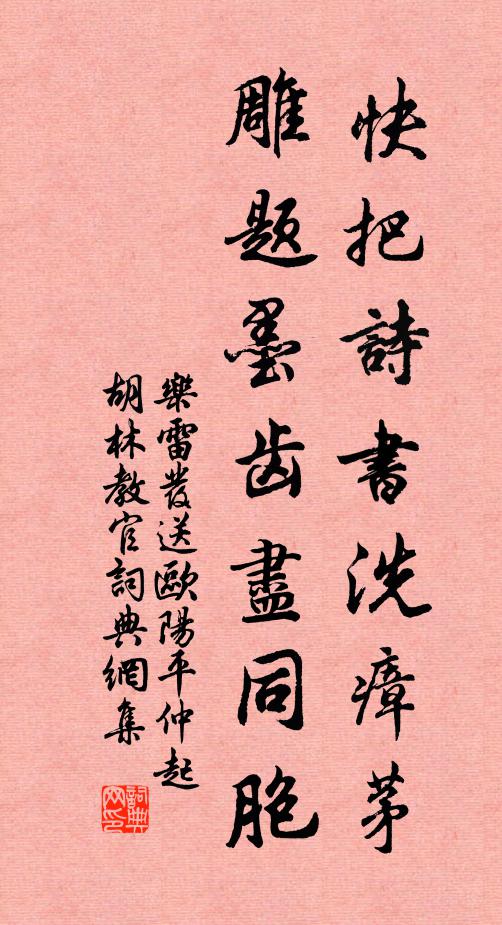 快把詩書洗瘴茅
雕題墨齿盡同胞
樂雷發送歐陽平仲起
胡林教官詞典網集
詞典网印